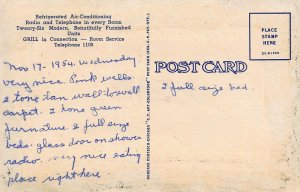 Refrigerated Air-Conditioning
Radio and Telephone in every Room.
Twenty-Six Modern, Beautifully Furnished
Units
GRILL in Connection -- Room Service
Telephone 1108
Nov 17. 1954. Wednesday
very nice. Pink walls
2 tone tan wall towall
carpet. 2 tone green
furnature. 2 full size
beds. glass door on shower
radio. very nice eating
place right here.
POST CARD
2 full size bed.
PLACE
STAMP
HERE